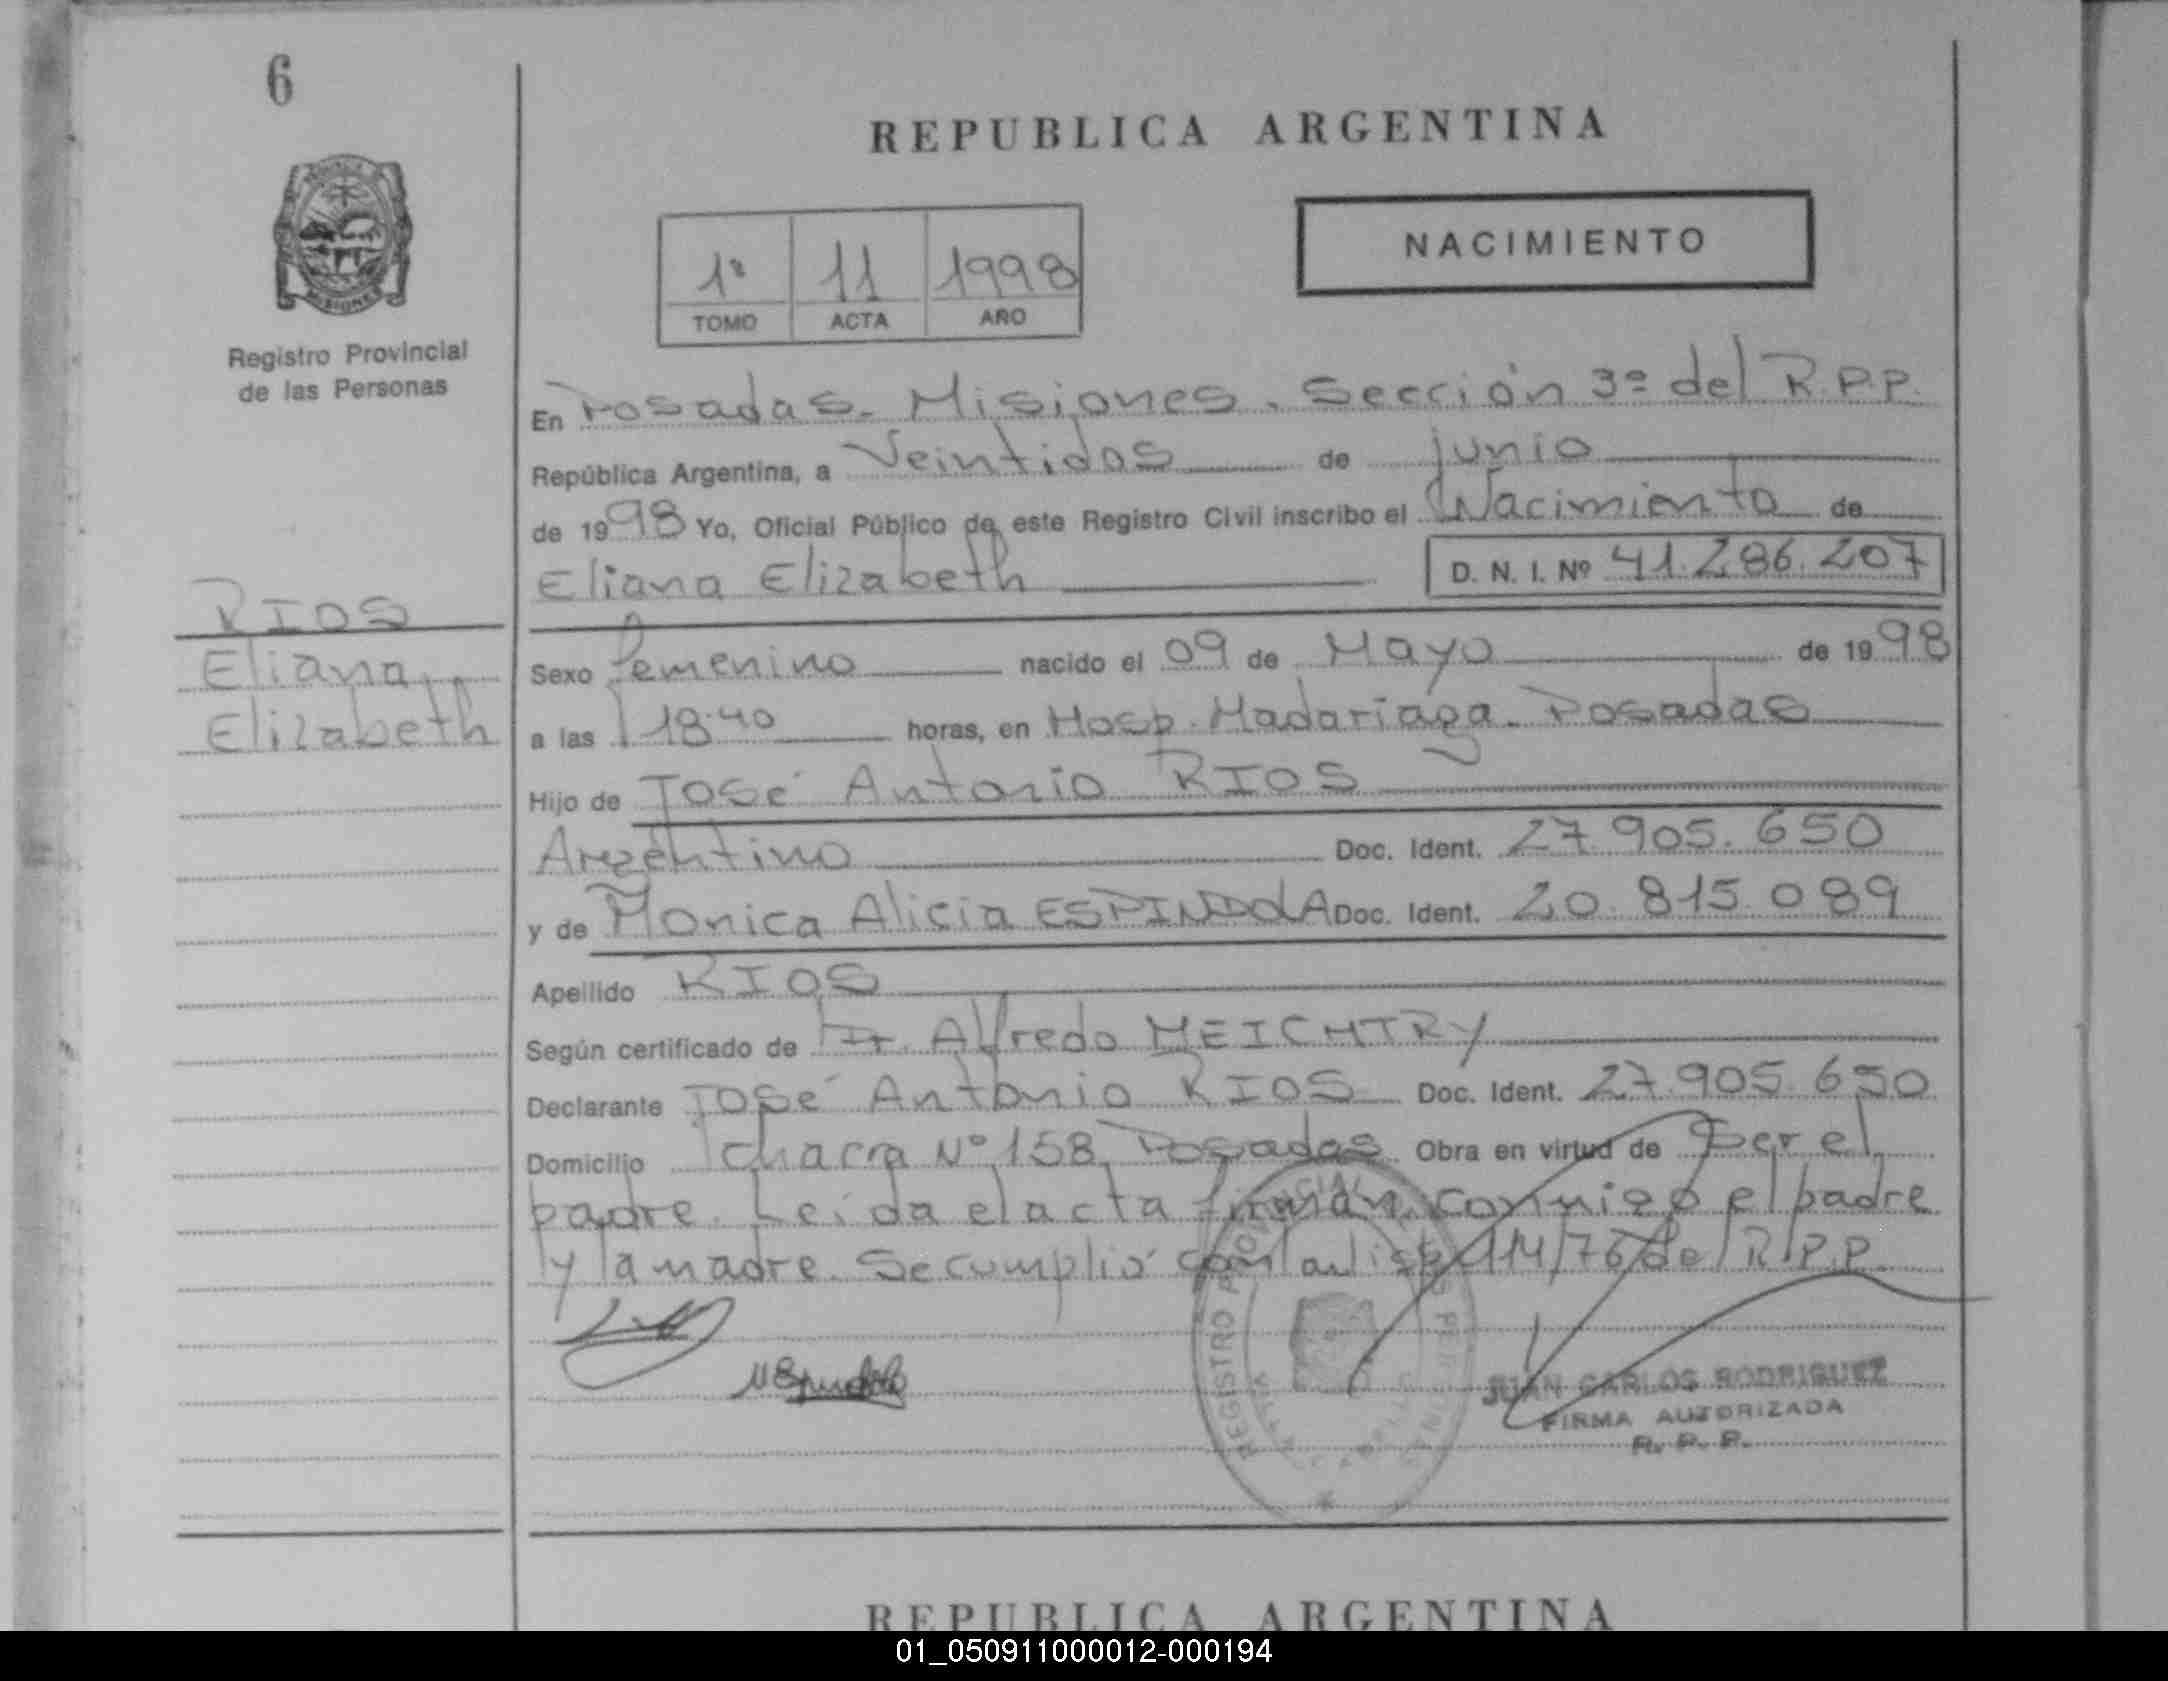 6
REPUBLICA ARGENTINA
NACIMIENTO
1º 11 1998
TOMO ACTA AÑO
MISIONES
Registro Provincial
de las Personas
En Posadas. Misiones. Sección 3º del R.P.P.
República Argentina, a Veintidos de junio
de 1998 Yo, Oficial Público de este Registro Civil inscribo el Nacimiento de
Eliana Elizabeth D. N. I. Nº 41.286.207
RIOS
Eliana
Elizabeth
Sexo femenino nacido el 09 de Mayo de 1998
a las 18.40 horas, en Hosp. Madariaga. Posadas
Hijo de José Antonio RIOS
Argentino Doc. Ident. 27.905.650
y de Monica Alicia ESPINDOLA Doc. Ident. 20.815.089
Apellido RIOS
Según certificado de Dr. Alfredo MEICHTRY
Declarante José Antonio RIOS Doc. Ident. 27.905.650
Domicilio Chacra Nº 158 Posadas Obra en virtud de Ser el
padre. Leída el acta firman conmigo el padre
y la madre. Se cumplió con 114/76 del R.P.P.
REGISTRO PROVINCIAL
JUAN CARLOS RODRIGUEZ
FIRMA AUTORIZADA
R. P. P.
REPUBLICA ARGENTINA
01_050911000012-000194